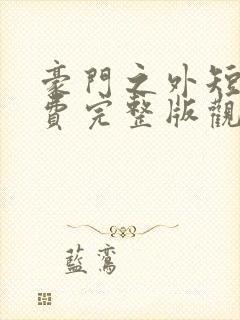 豪門之外短
費完整版觀
藍鸞